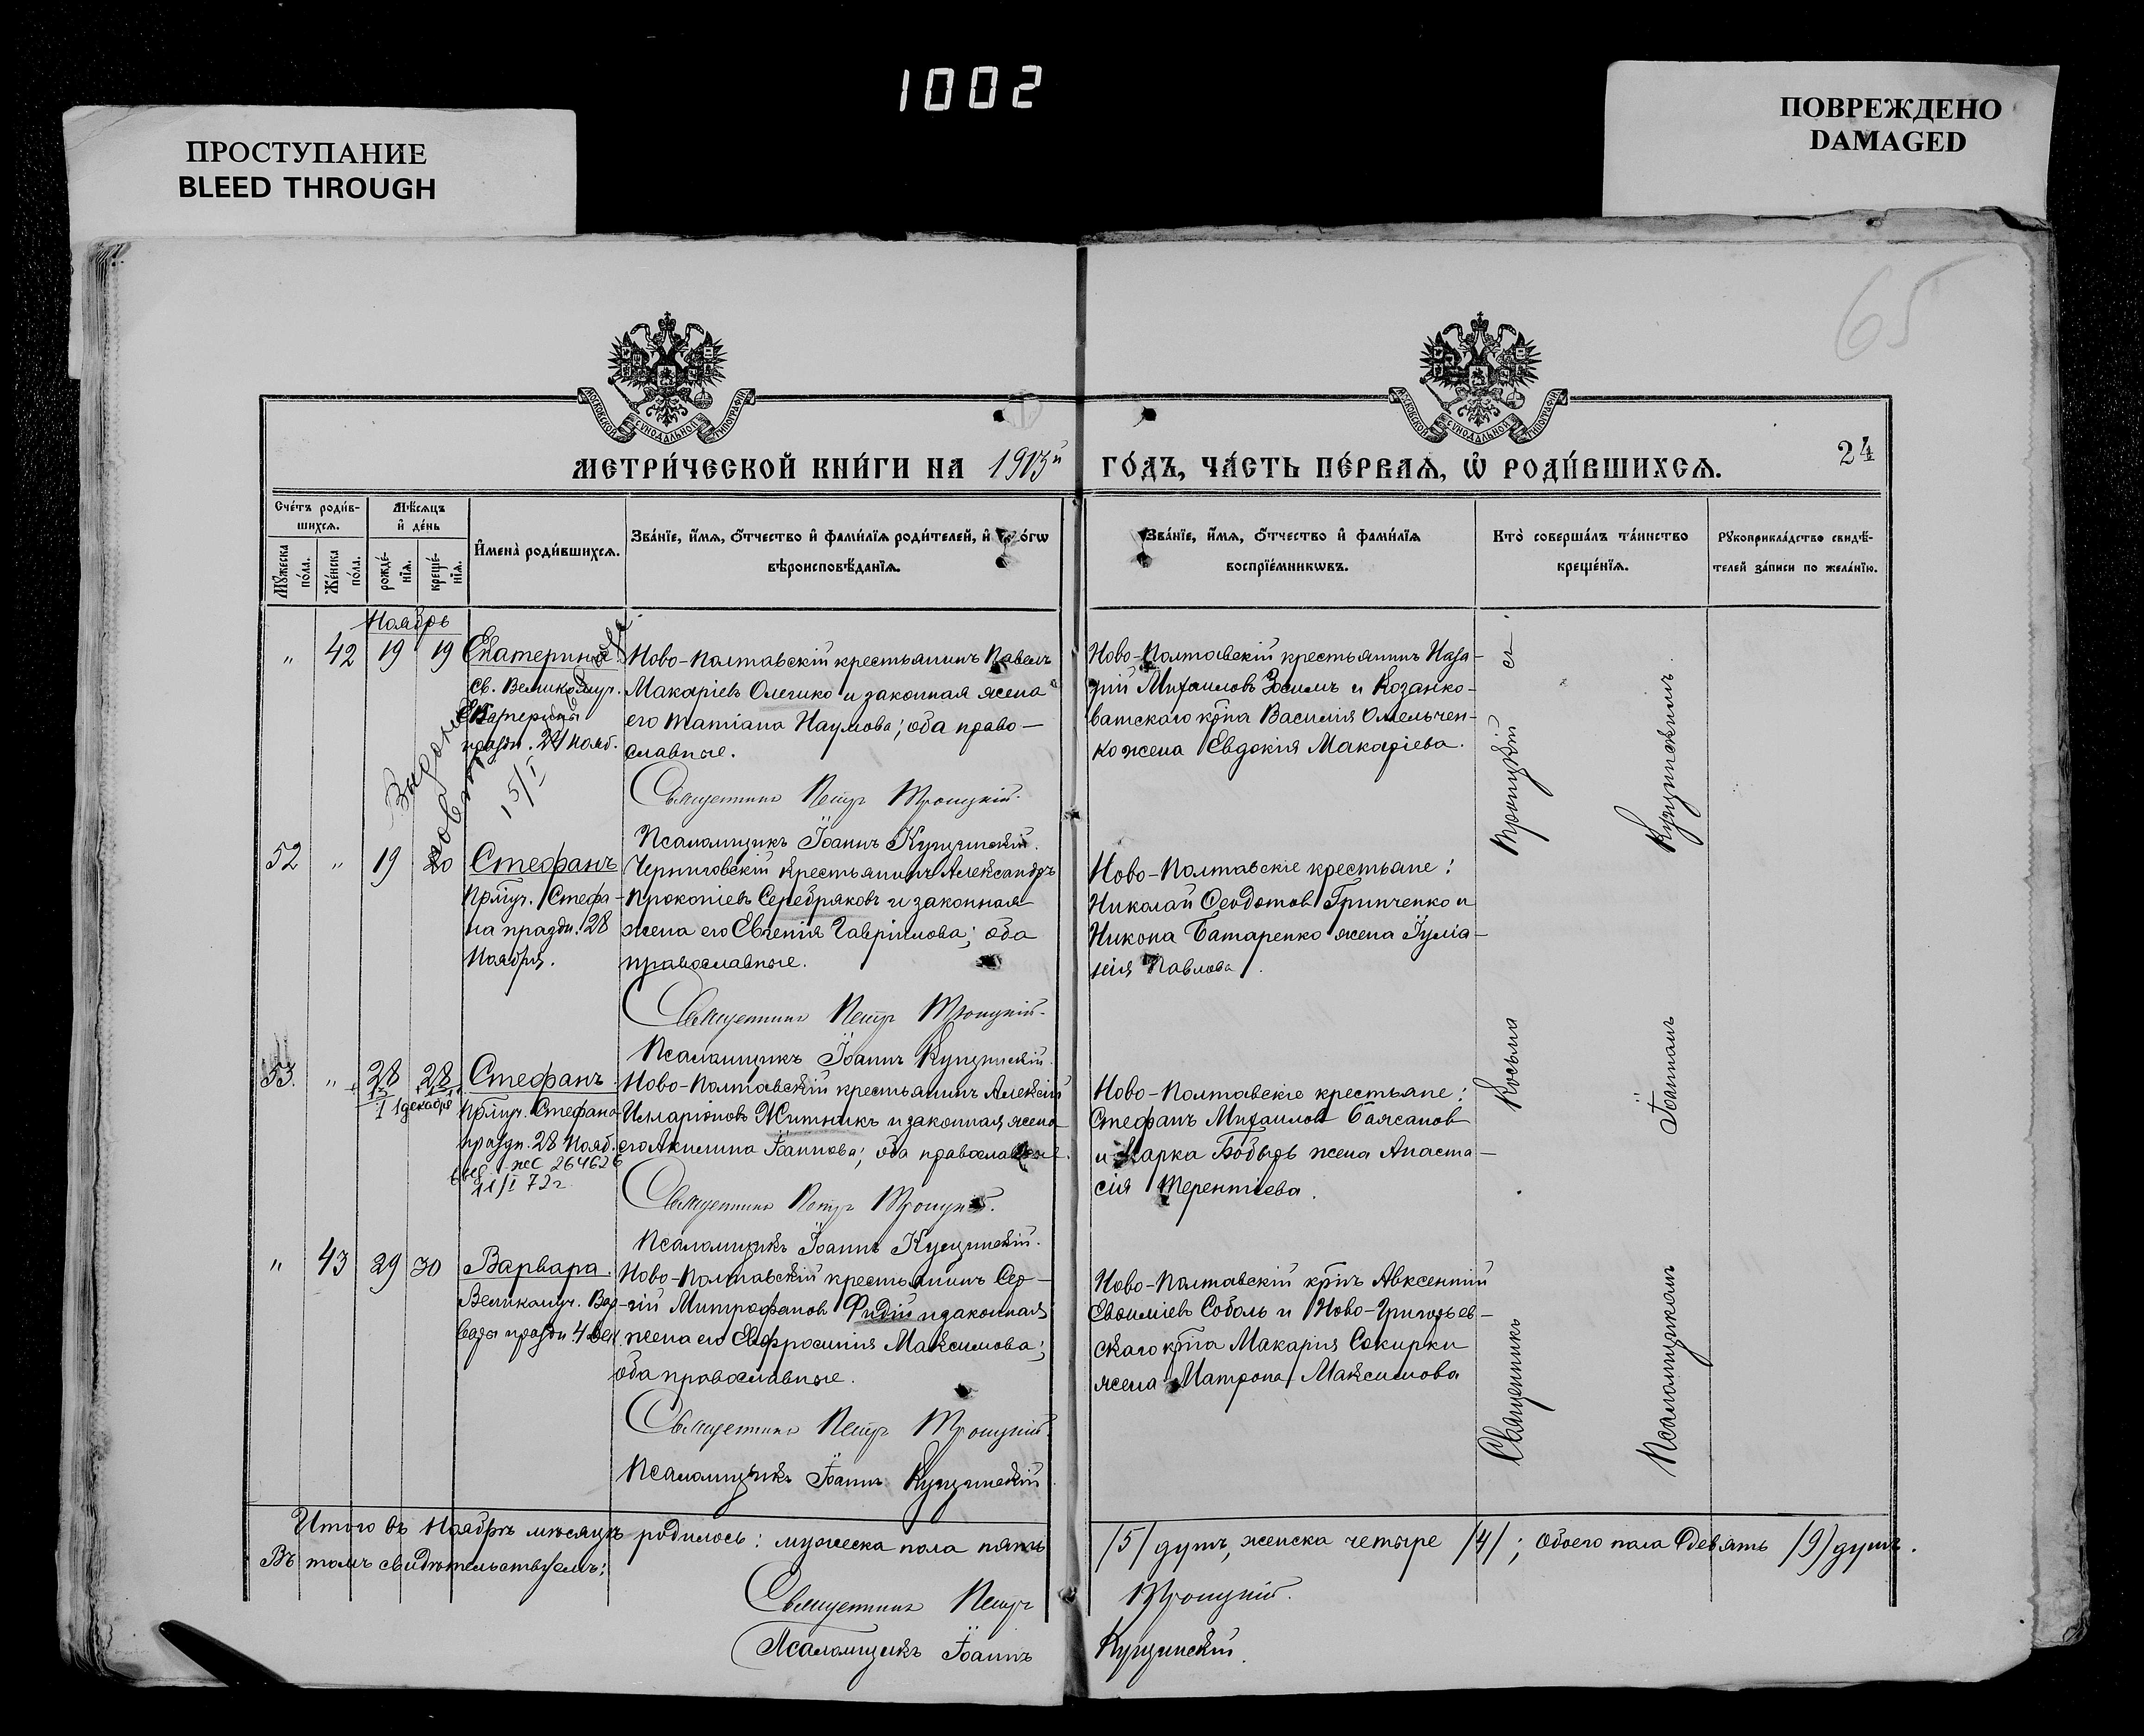 1002
ПРОСТУПАНИЕ
BLEED THROUGH
ПОВРЕЖДЕНО
DAMAGED
65
МОСКОВСКОЙ СѴНОДАЛЬНОЙ ТИПОГРАФІИ
МОСКОВСКОЙ СѴНОДАЛЬНОЙ ТИПОГРАФІИ
МЕТРИ́ЧЕСКОЙ КНИ́ГИ НА 1913й ГО́ДЪ, ЧА́СТЬ ПЕ́РВАѦ, Ѡ҆ РОДИ́ВШИХСѦ.
24
Сче́тъ роди́в-
шихсѧ.
Мꙋ́жеска по́ла.
Же́нска по́ла.
Мѣ́сѧцъ
и҆ де́нь
рожде́-
нїѧ.
креще́-
нїѧ.
И҆мена̀ роди́вшихсѧ.
Зва́нїе, и҆́мѧ, ѻ҆́тчество и҆ фами́лїѧ роди́телей, и҆ ко́гѡ
вѣроисповѣ́данїѧ.
Зва́нїе, и҆́мѧ, ѻ҆́тчество и҆ фами́лїѧ
воспрїе́мникѡвъ.
Кто̀ соверша́лъ та́инство
креще́нїѧ.
Рꙋкоприкла́дство свидѣ́-
телей за́писи по жела́нїю.
Ноябрь
" 42 19 19 Екатерина.
Св. Великомуч.
Екатерины
праздн. 24 Нояб.
15/I
Ново-Полтавскій крестьянинъ Павелъ
Макаріевъ Олешко и законная жена
его Татіана Наумова; оба право-
славные.
Священникъ Петръ Троицкій.
Псаломщикъ Іоаннъ Кущинскій.
Ново-Полтавскій крестьянинъ Наза-
рій Михаиловъ Зосимъ и Козанко-
ватскаго кр-на Василія Омельчен-
ко жена Евдокія Макаріева.
52 " 19 20 Стефанъ
Прпмуч. Стефа-
на праздн. 28
Ноября.
Черниговскій крестьянинъ Александръ
Прокопіевъ Серебряковъ и законная
жена его Евгенія Гавріилова; оба
православные.
Священникъ Петръ Троицкій.
Псаломщикъ Іоаннъ Кущинскій.
Ново-Полтавскіе крестьяне:
Николай Ѳеодотовъ Гринченко и
Никона Батаренко жена Іуліа-
нія Павлова.
53. " 28 28 Стефанъ.
1 декабря
Прпмуч. Стефана
праздн. 28 Нояб.
264626
11/I 72г
Ново-Полтавскій крестьянинъ Алексій
Иларіоновъ Житникъ и законная жена
его Акилина Іоаннова; оба православные.
Священникъ Петръ Троицкій.
Псаломщикъ Іоаннъ Кущинскій.
Ново-Полтавскіе крестьяне:
Стефанъ Михаиловъ Баясановъ
и Карка Бобырь жена Анаста-
сія Терентіева.
" 43 29 30 Варвара.
Великомуч. Вар-
вары праздн 4 Дек.
Ново-Полтавскій крестьянинъ Сер-
гій Митрофановъ Фидій и законная
жена его Евфросинія Максимова;
оба православные.
Священникъ Петръ Троицкій
Псаломщикъ Іоаннъ Кущинскій
Ново-Полтавскій кр-нъ Авксентій
Евѳиміевъ Соболь и Ново-Григорьев-
скаго кр-на Макарія Сокирки
жена Матрона Максимова
Священникъ Косьма Троицкій съ
Псаломщикомъ Іоанномъ Кущинскимъ.
Итого въ Ноябрѣ мѣсяцѣ родилось: мужеска пола пять /5/ душъ, женска четыре /4/; обоего пола девять /9/ душъ.
Въ томъ свидѣтельствуемъ:
Священникъ Петръ Троицкій.
Псаломщикъ Іоаннъ Кущинскій.